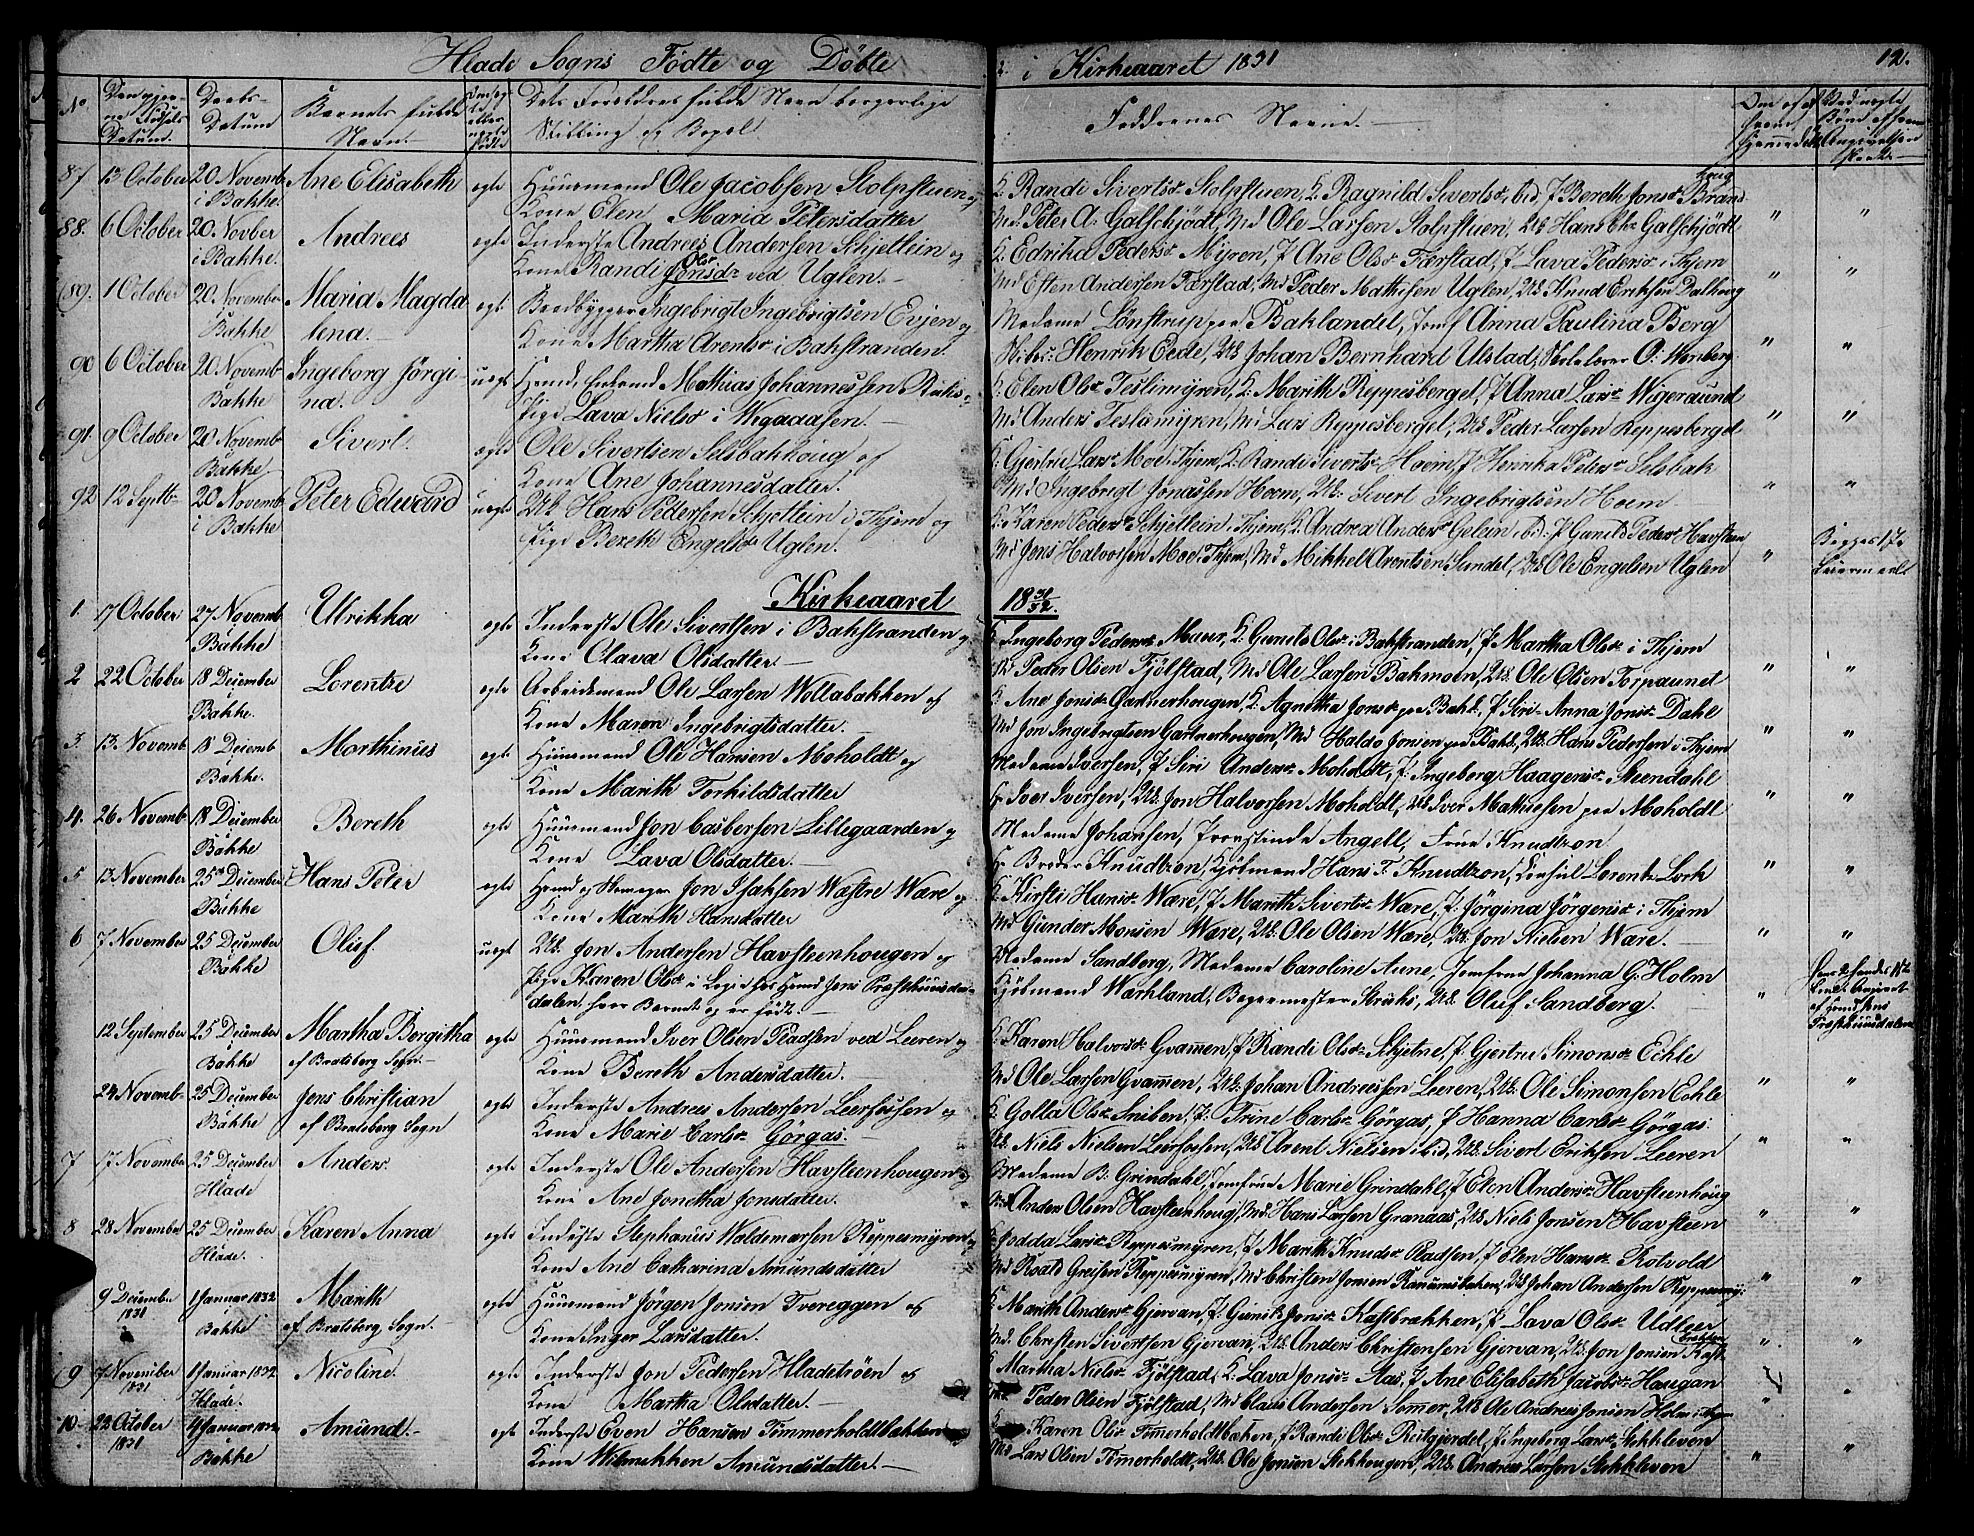 Hlade Sogns Födte og Döbte
i Kirkeaaret 1831
12.
No
Datum.
Daabs-
Datum
Barnets fulde
Navn
Stilling og Bopæl
Faddernes Navne.
87 13 October 20 Novemb i Bakke Ane Elisabeth egte Huusmand Ole Jacobsen Stolpstuen og
Kone Elen Maria Petersdatter
K. Randi Siverts Stolpstuen, K. Ragnild Siverts ibid, P Bereth Jons Brand
haug
Md. Peter A. Galschjödt, Md Ole Larsen Stolpstuen, Uk Hans Galschjödt
88. 6 October 20. Novber i Bakke. Andrees egte Inderste Andrees Andersen Schjetlein og
Kone Randi Jonsdr ved Uglen.
Ols
K. Edrika Peders Myren, P Ane Ols Færstad, P Lava Peders i Thjem
Md Esten Andersen Færstad, Md Peder Mathisen Uglen, Uk Knud Eriksen Dalhoug
89. 1 October 20. Novemb Bakke Maria Magda
lena. egte Brødbygger Ingebrigt Ingebrigtsen Evjen og
Kone Martha Arents i Bakstranden.
Madame Lönstrup paa Baklandet, Jomf Anna Paulina Berg
Henrik Eede, Uk Johan Bernhard Ulstad, Skolelærer O. Wenberg
90 6 October 20 Novemb Bakke Ingeborg Jörgi-
na. uegte Mathias Johannessen
Pige Lava Niels i
K. Elen Ols Teslimyren, K. Marith Reppesberget, P Anna Lars Wigeraund
Md Anders Teslimyren, Md Lars Reppesberget, Uk Peder Larsen Reppesberget
91. 9 October 20 Novemb Bakke Sivert. egte Ole Sivertsen Selsbakhoug og
Kone Ane Johannesdatter.
K. Gjertru Lars Moe Thjem, K. Randi Siverts Hoem, P Henrika Peters Selsbak
Md Ingebrigt Jonassen Hoem, Uk. Sivert Ingebrigtsen Hoem
92 12 Septb 20 Novemb i Bakke Peter Edward uegte Uk Hans Pedersen Schjetlein i Thjem og
Pige Bereth Engels Uglen.
K. Karen Peders Schjetlein i Thjem, K. Andrea Anders Gelein ibd, P Gunild Peders Havsteen
Md Jens Halvorsen Moe Thjem, Md Mikkel Arentsen Sundet, Uk Ole Engelsen Uglen
Begges 1te
Leiermaal
Kirkeaaret
18 31/32.
1. 7 October 27 Novemb Bakke Ulrikka egte Inderste Ole Sivertsen i Bakstranden og
Kone Olava Olsdatter.
K. Ingeborg Peders Maur, K. Gunild Ols i Bakstranden, P Martha Ols i Thjem
Md. Peder Olsen Fjölstad, Md Ole Larsen Bakmoen, Uk. Ole Olsen Torpaunet
2 22 October 18 December Bakke. Lorentze egte Arbeidsmand Ole Larsen Wollabakken og
Kone Maren Ingebrigtsdatter.
K. Ane Jons Gartnerhougen, K. Agnetha Jons paa Bakl. P Siri Anna Jons Dahl
Md Jon Ingebrigtsen Gartnerhougen, Md Haldo Jonsen paa Bakl, Uk. Hans Pedersen i Thjem
3. 13. Novemb 18 Decemb Bakke. Morthinus egte Huusmand Ole Hansen Moholdt og
Kone Marith Torkildsdatter
Madame Iversen, P Siri Anders Moholdt, P. Ingeborg Haagens Steendahl
Hr Iver Iversen, Uk. Jon Halvorsen Moholdt, Uk Iver Mathiesen paa Moholdt
4. 26 Novemb 18 December Bakke Bereth egte Huusmand Jon Casbersen Lillegaarden og
Kone Lava Olsdatter.
Madame Johansen, Provstinde Angell, Frue Knudtzon
Hr Broder Knudtzon, Kjöbmand Hans F. Knudtzon, Consul Lorentz Lorck
5 13 November 25de December Bakke Hans Peter egte Jon Isaksen Wæstre Wære og
Kone Marith Hansdatter
K. Kirsti Hans Wære, P Marith Siverts Wære, P. Jörgina Jörgens i Thjem
Md Gunder Monsen Wære, Uk. Ole Olsen Wære, Uk. Jon Nielsen Wære.
6 7 November 25 December Bakke Oluf uegte Uk. Jon Andersen Havsteenhougen og
Pige Karen Ols i Logie hos Jens Præsthuus
dalen, hvor Barnet og er födt.
Madame Sandberg, Madame Caroline Aune, Jomfrue Johanna G. Holm
Kjöbmand Warhland, Bagermester Strøhs, Uk. Oluf Sandberg.
12 September 25 December Bakke Martha Bergitha
af Bratsberg Sogn egte Huusmand Iver Olsen Stadsen ved Leeren og
Kone Bereth Andersdatter.
K. Karen Halvors Gvammen, P Randi Ols Schjetne, P. Gjertru Simons Eckle
Md Ole Larsen Gvammen, Uk. Johan Andreessen Leeren, Uk. Ole Simonsen Eckle
24 Novemb 25 December Bakke Jens Christian
af Bratsberg Sogn egte Inderste Andreas Andersen Leerfossen og
Kone Marie Carls Görgas.
K. Golla Ols Sniben, P. Trine Carls Görgas, P Hanna Carls Görgas.
Uk. Niels Nielsen Leerfossen, Uk Arent Nielsen ibid, Uk. Sivert Eriksen Leeren
7 17 November 25 December Hlade Anders. egte Inderste Ole Andersen Havsteenhougen og
Kone Ane Jonetha Jonsdatter.
Madame B. Grindahl, Jomfrue Marie Grindahl, P Elen Anders Havsteenhoug
Md Anders Olsen Havsteenhoug, Md. Hans Larsen Granaas, Uk Niels Jonsen Havsteen
8 28 November 25 December Hlade. Karen Anna egte Inderste Stephanus Waldemarsen Reppesmyren og
Kone Ane Catharina Amundsdatter
K. Lars Reppesmyren, P Marith Knuds Stadsen, P Elen Hans Rotvold
Md Roald Greisen Reppesmyren, Md Christen Jonsen Ranumsbaken, Uk Johan Andersen Reppesmyr
9 December 1831 1 Januar 1832 Bakke Marith
af Bratsberg Sogn egte Huusmand Jörgen Jonsen Tvereggen og
Kone Inger Larsdatter.
K. Marith Anders Gjervan, P. Gunild Jons Kastbrækken, P. Lava Ols Udleer
Md. Christen Sivertsen Gjervan, Uk. Anders Christensen Gjervan, Uk. Jon Jonsen Kast
brækken
9 7 November 1831 1 Januar 1832 Hlade. Nicoline. egte Inderste Jon Pedersen Hladetröen og
Kone Martha Olsdatter.
K Martha Niels Fjölstad, K. Lava Jons Aas, P Ane Elisabeth Jacobs Haugan
Peder Olsen Fjölstad, Md Claus Andersen Somer, Uk Ole Andreas Jonsen Holm i Thjem
10. 22 October 1831 1 Januar 1832 Bakke Amund. egte Inderste Even Hansen Timmerholdtbakken
Kone Wilmikken Amundsdatter.
Karen Ols Timerholdtbaken, P Randi Ols Reitgjerdet, P Ingeborg Lars Stokkleven
Md Lars Olsen Timerholdt, Uk Ole Jonsen Stokhougen, Uk. Andreas Larsen Stokkleven